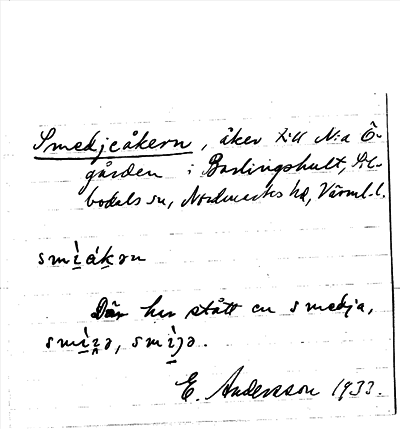 Smedjeåkern, åker till N:a Ö-
gården i Barlingshult, Sil-
bodals sn, Nordmarks hd, Värml. l.
smìákən
Där har stått en smedja,
smìʒə, smìjə.
E. Andersson 1933.